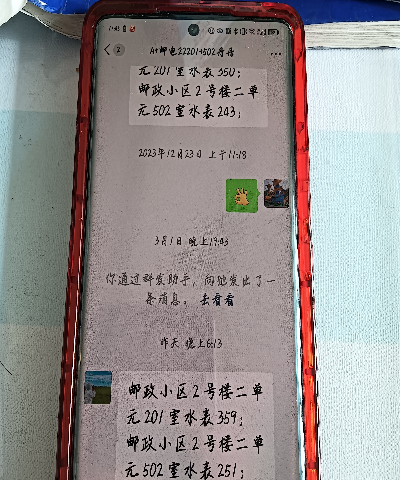 2
A+邮电22201+502丹丹
元201室水表350;
邮政小区2号楼二单
元502室水表243;
2023年12月23日 上午11:18
3月1日 晚上19:03
你通过群发助手，向她发出了一
条消息。去看看
昨天 晚上6:13
邮政小区2号楼二单
元201室水表359;
邮政小区2号楼二单
元502室水表251;